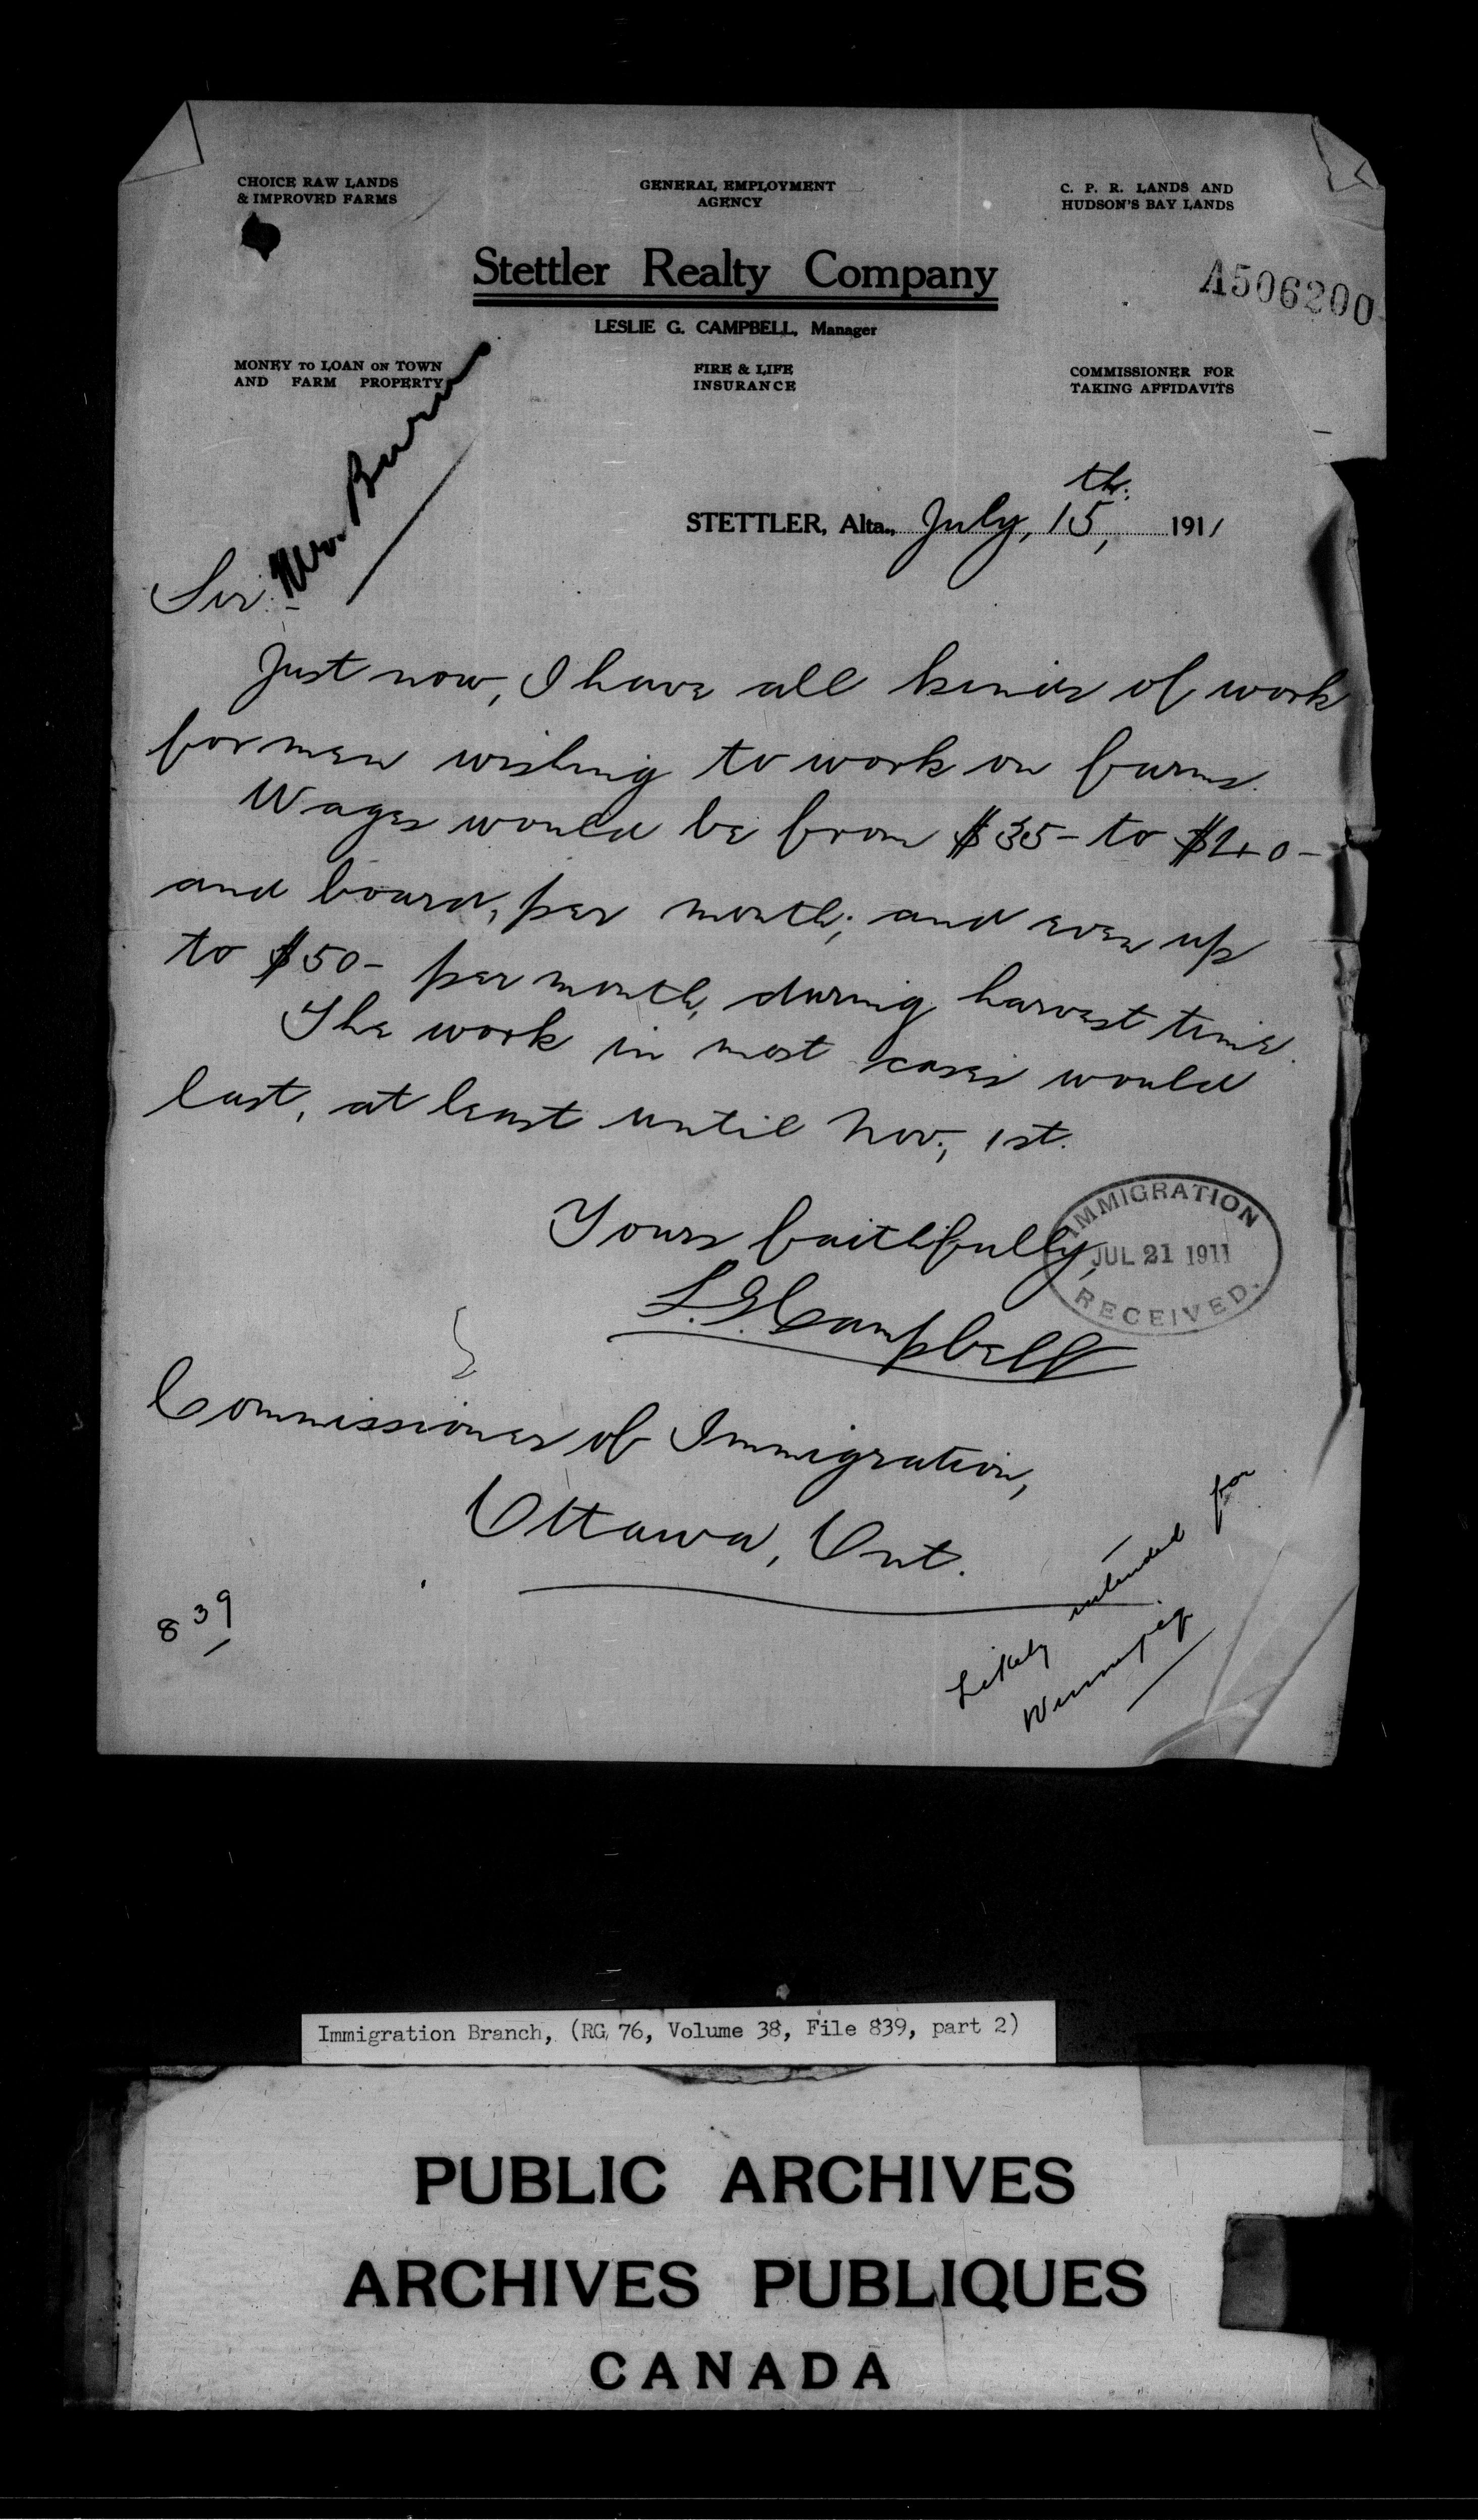 CHOICE RAW LANDS
& IMPROVED FARMS
GENERAL EMPLOYMENT
AGENCY
C. P. R. LANDS AND
HUDSON'S BAY LANDS
Stettler Realty Company
A506200
LESLIE G. CAMPBELL, Manager
MONEY TO LOAN ON TOWN
AND FARM PROPERTY
FIRE & LIFE
INSURANCE
COMMISSIONER FOR
TAKING AFFIDAVITS
STETTLER, Alta., July, 15th, 1911
Sir:-
Just now, I have all kinds of work
for men wishing to work on farms.
Wages would be from $35- to $40-
and board, per month; and even up
to $50- per month, during harvest time.
The work in most cases would
last, at least until Nov, 1st.
Yours faithfully,
L.G. Campbell
IMMIGRATION
JUL 21 1911
RECEIVED.
Commissioner of Immigration,
Ottawa, Ont.
839
Likely intended for
Winnipeg
Immigration Branch, (RG 76, Volume 38, File 839, part 2)
PUBLIC ARCHIVES
ARCHIVES PUBLIQUES
CANADA